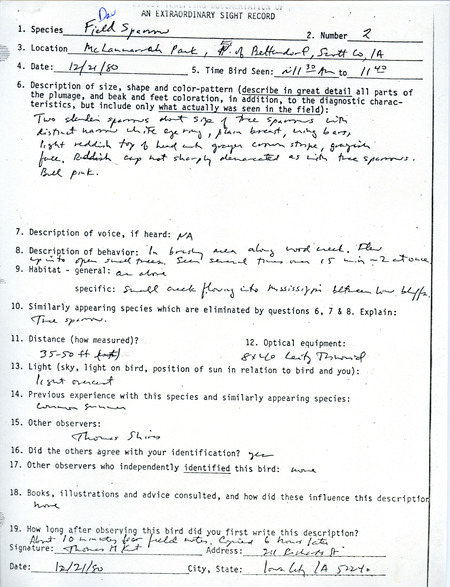 AN EXTRAORDINARY SIGHT RECORD
1. Species Field Sparrow 2. Number 2
3. Location Park, of Bettendorf, Scott Co, IA
4. Date: 12/21/80 5. Time Bird Seen: ~11 30 AM to 11 40
6. Description of size, shape and color-pattern (describe in great detail all parts of
the plumage, and beak and feet coloration, in addition, to the diagnostic charac-
teristics, but include only what actually was seen in the field):
Two slender sparrows about size of tree sparrows with
distinct narrow white eye ring, plain breast, wing bars,
light reddish top of head with grayer crown stripe, grayish
face. Reddish cap not sharply demarcated as with tree sparrows.
Bill pink.
7. Description of voice, if heard: NA
8. Description of behavior: In brushy area along creek. Flew
up into open small trees. Seen several times over 15 min - 2 at once
9. Habitat - general: as above
specific: Small creek flowing into Mississippi between low bluffs.
10. Similarly appearing species which are eliminated by questions 6, 7 & 8. Explain:
Tree sparrow.
11. Distance (how measured)? 12. Optical equipment:
35-50 ft 8x40 Leitz Trinovid
13. Light (sky, light on bird, position of sun in relation to bird and you):
light overcast
14. Previous experience with this species and similarly appearing species:
Common summer
15. Other observers:
Thomas
16. Did the others agree with your identification? yes
17. Other observers who independently identified this bird: none
18. Books, illustrations and advice consulted, and how did these influence this description
none
19. How long after observing this bird did you first write this description?
About 10 minutes for field notes. Copied 6 hours later
Signature: Thomas H Kent Address: 211 St
Date: 12/21/80 City, State: Iowa City, IA 52240